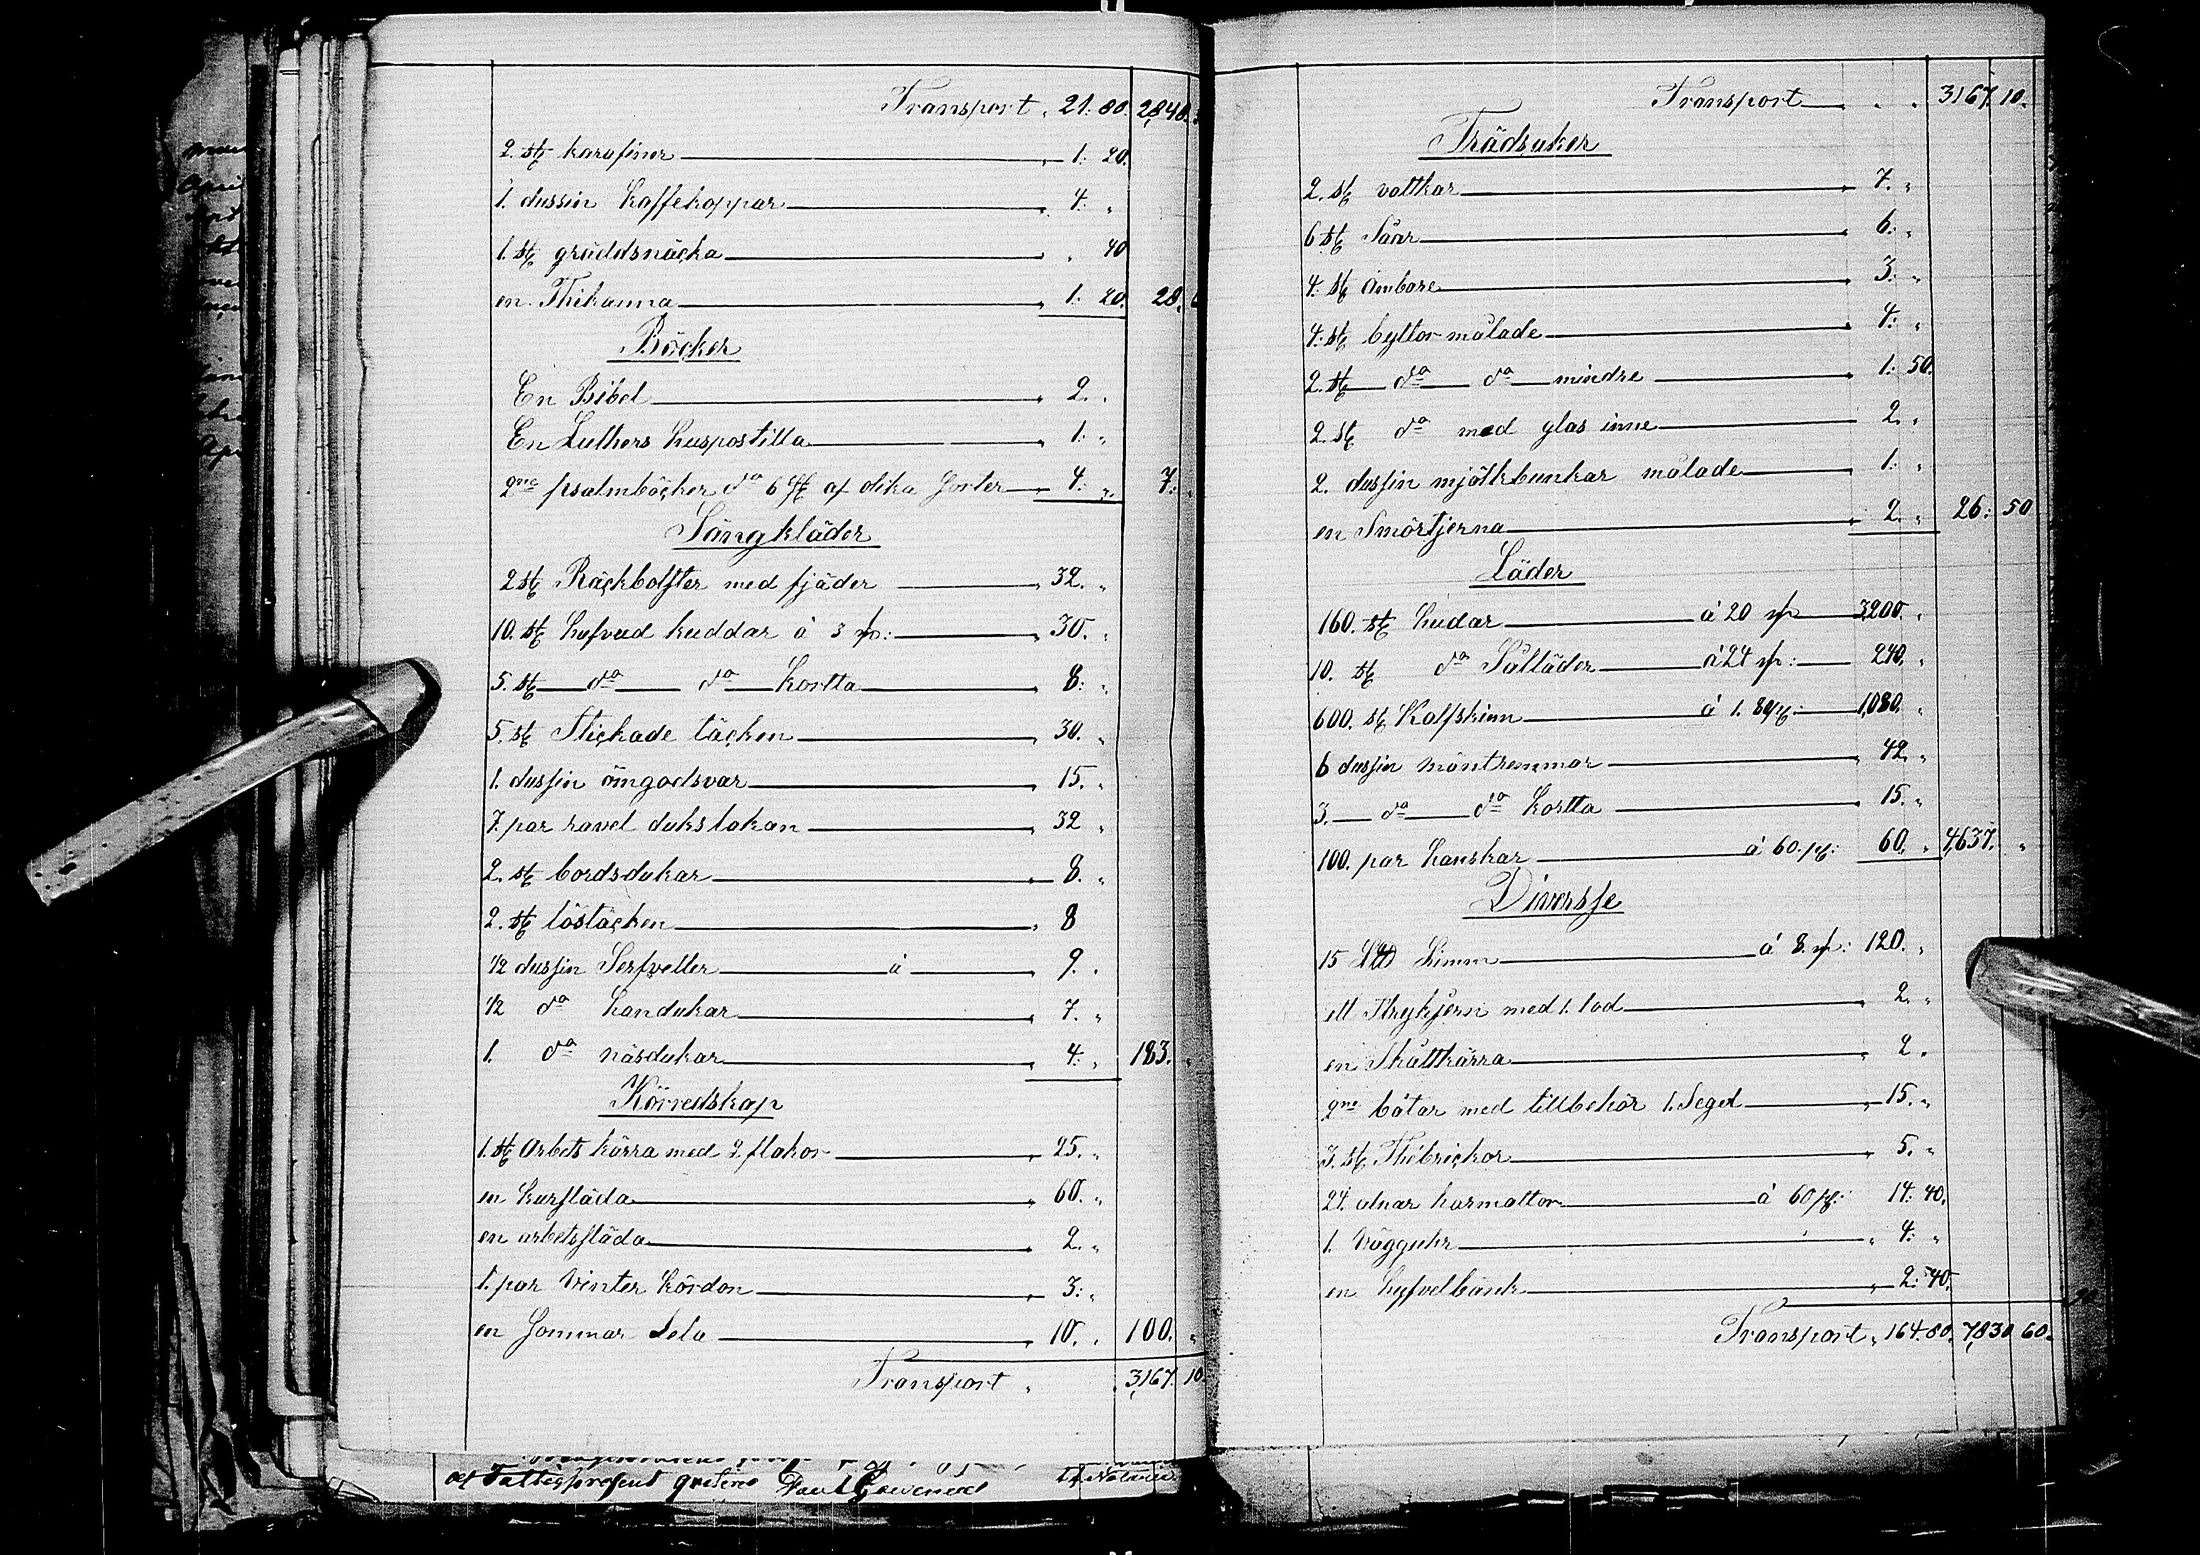 Transport „ 21: 80. 2,840.
2. st karafiner 1: 20.
1. dussin Kaffekoppar 4. „
1. st gräddsnäcka „ 40
en Thikanna 1: 20. 28.
Böcker
En Bibel 2. „
En Luthers huspostilla 1: „
2ne psalmböcker da 6 st af olika Sorter 4. „ 7. „
Sängkläder
2 st Räckbolster med fjäder 32. „
10. st hufvud kuddar à 3 30. „
5. st da da Kortta 8: „
5. st Stickade täcken 30. „
1. dussin örngodsvar 15. „
7. par lakan 32 „
2. st bordsdukar 8. „
2. st löstäcken 8
1/2 dussin Serfvetter à 9. „
1/2 da handukar 7. „
1. da näsdukar 4. „ 183. „
Körredskap
1. st Arbets kärra med 2 flakor 25. „
en kursläda 60. „
en arbetssläda 2. „
1. par Vinter Kördon 3: „
en Sommar Sela 10. „ 100. „
Transport „ 3,167. 10.
Transport „ „ 3167. 10.
Trädsaker
2. st vattkar 7. „
6 st Såar 6. „
4. st Ämbare 3: „
4. st byttor målade 4: „
2. st da da mindre 1: 50.
2. st da med glas inne 2. „
2. dussin mjölkbunkar målade 1: „
en Smörtjerna 2. „ 26: 50
Läder
160. st hudar à 20 3200. „
10. st da Sålläder à 24 240. „
600. st Kalfskinn à 1. 80 1,080. „
6 dussin 42. „
3. da da Kortta 15. „
100. par hanskar à 60. 60. „ 4,637. „
Diversse
15 Limm à 8. 120. „
ett Strykjern med 1. lod 2. „
en Skåttkärra 2. „
2ne båtar med tillbehör 1. Segel 15. „
3. st Thébrickor 5. „
24. alnar harmattor à 60 14: 40.
1. Vägguhr 4: „
en hyfvelbänk 2: 40.
Transport „ 164. 80. 7,830. 60.